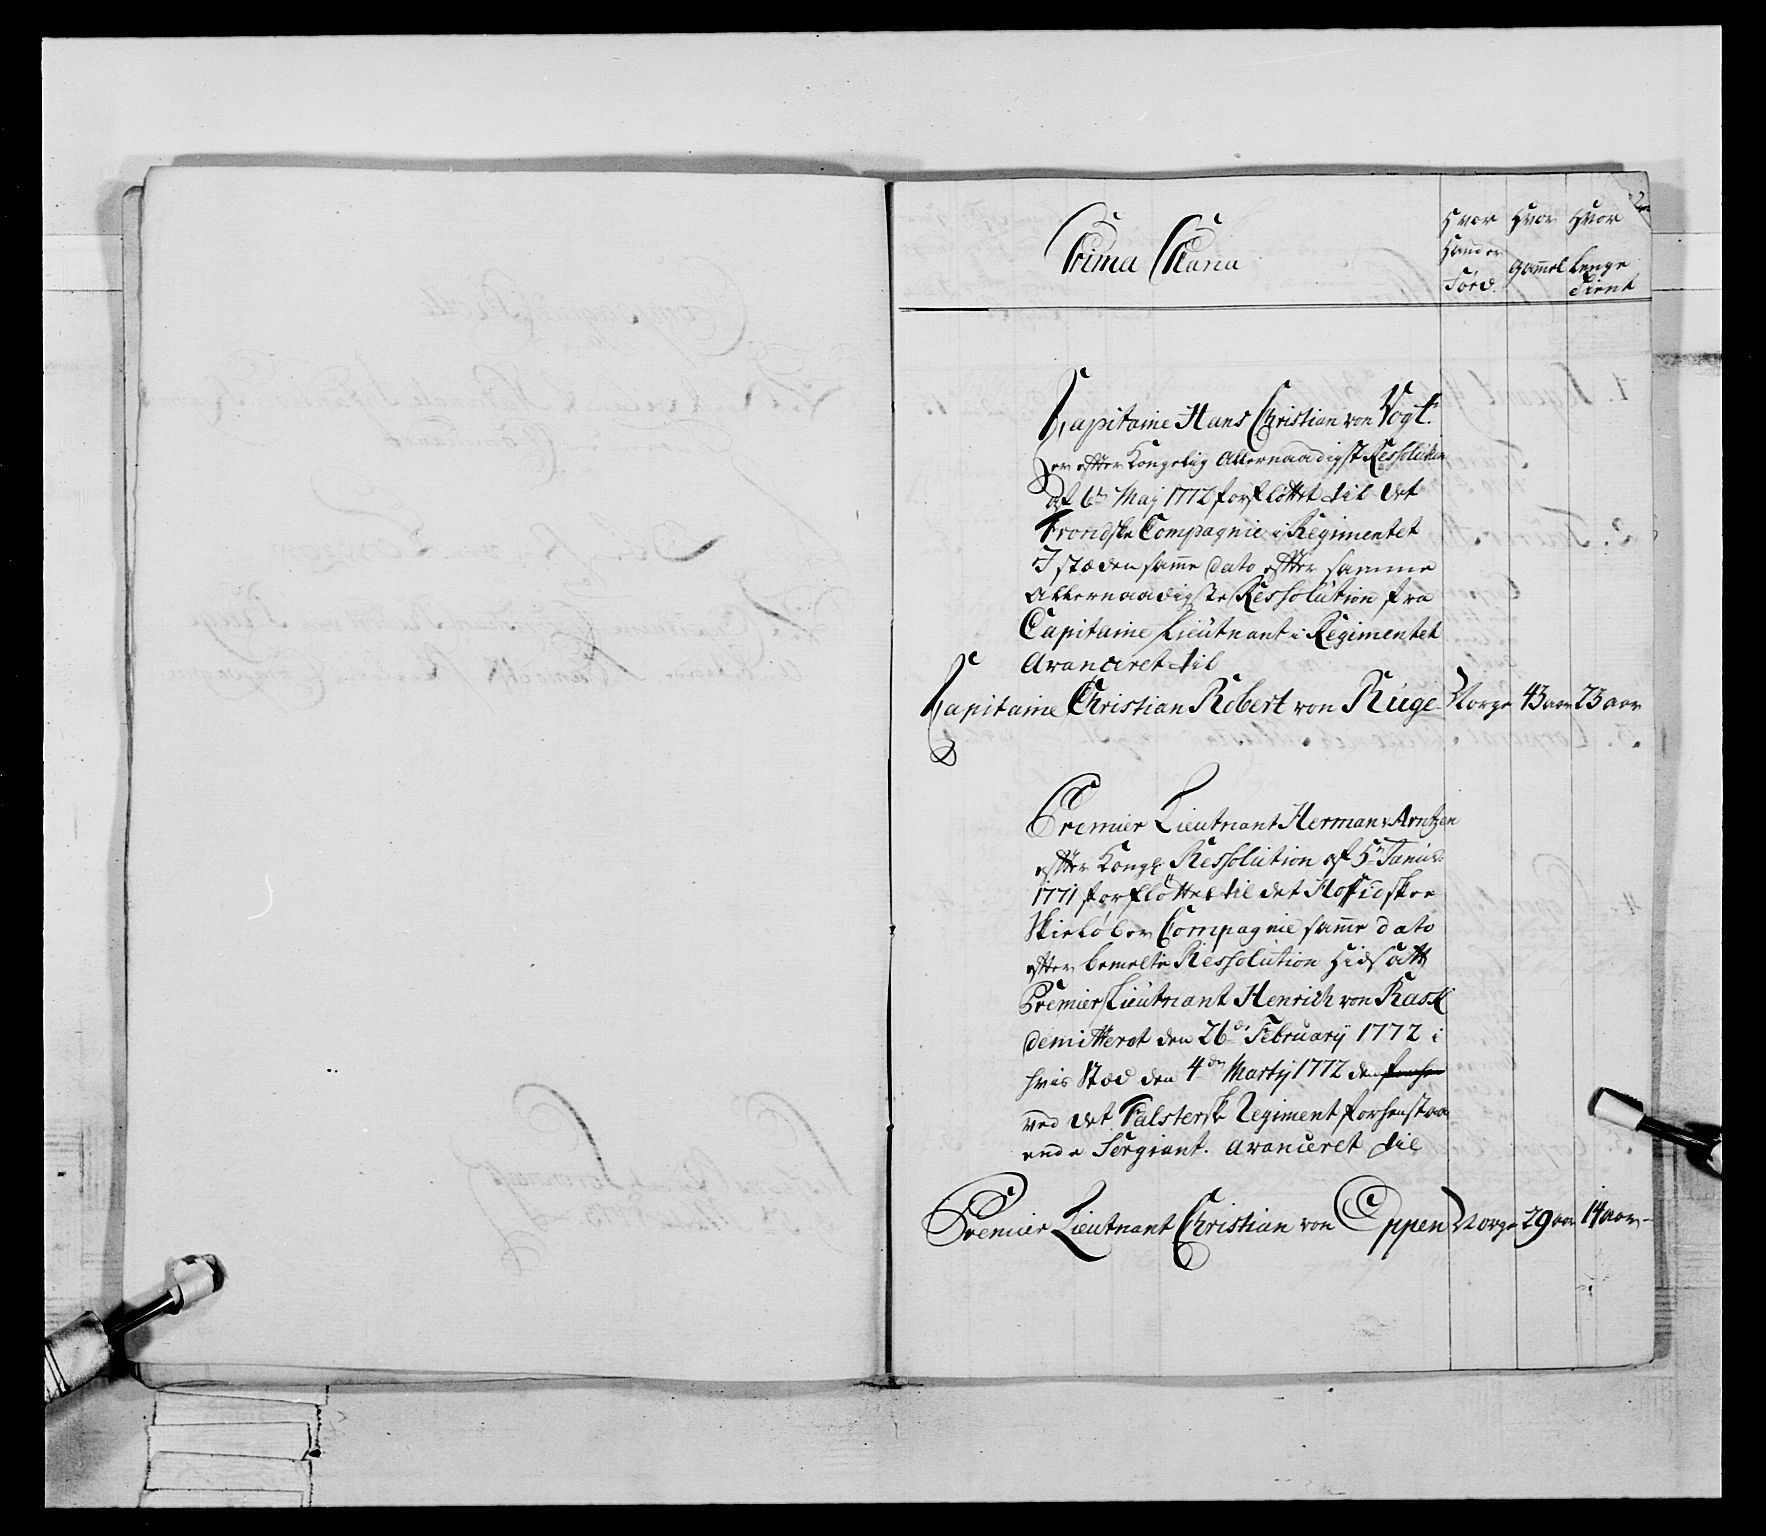 Prima Plana
Hvor Hvor Hvor
Hand er
Gam̄el Lenge
Fød. Tient
Capitaine Hans Christian von Vogt.
er efter Kongelig Allernaadigst Ressolution
af 6te Maj 1772 forfløttet til det
Trondske Compagnie i Regimentet
I stæden sam̄e dato efter samme
Allernaadigste Ressolution fra
Capitaine Lieutnant i Regimentet
Avanceret til
Capitaine Christian Robert von Rüge Norge 43 aar 23 aar
Premier Lieutnant Herman Arntzen
efter Kongl: Ressolution af 5te Janüar:
1771 forfløttet til det Hoffidske
Skieløber Compagnie sam̄e dato
efter bemelte Ressolution Hidsatt
Premier Lieutnant Henrich von Kask
demitteret den 26de February 1772 i
hvis Stæd den 4de Martij 1772 den
ved det Falsterske Regiment forhenstaa
ende Sergiant. avanceret til
Premier Lieutnant Christian von Eppen Norge 29 aar 14 aar